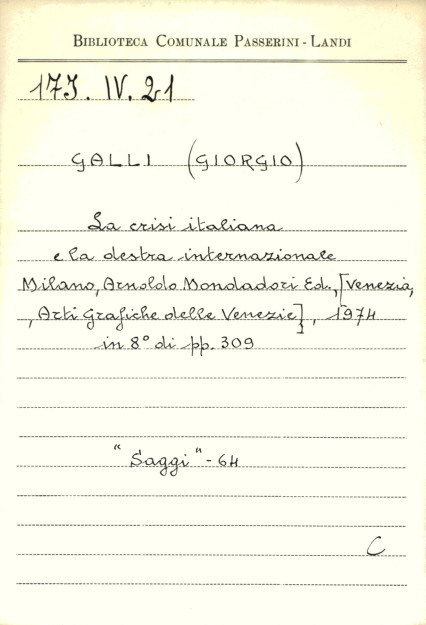 BIBLIOTECA COMUNALE PASSERINI - LANDI
173. IV. 21
GALLI (GIORGIO)
La crisi italiana
e la destra internazionale
Milano, Arnoldo Mondadori Ed., [Venezia,
, Arti Grafiche delle Venezie], 1974
in 8° di pp. 309
"Saggi" - 64
C